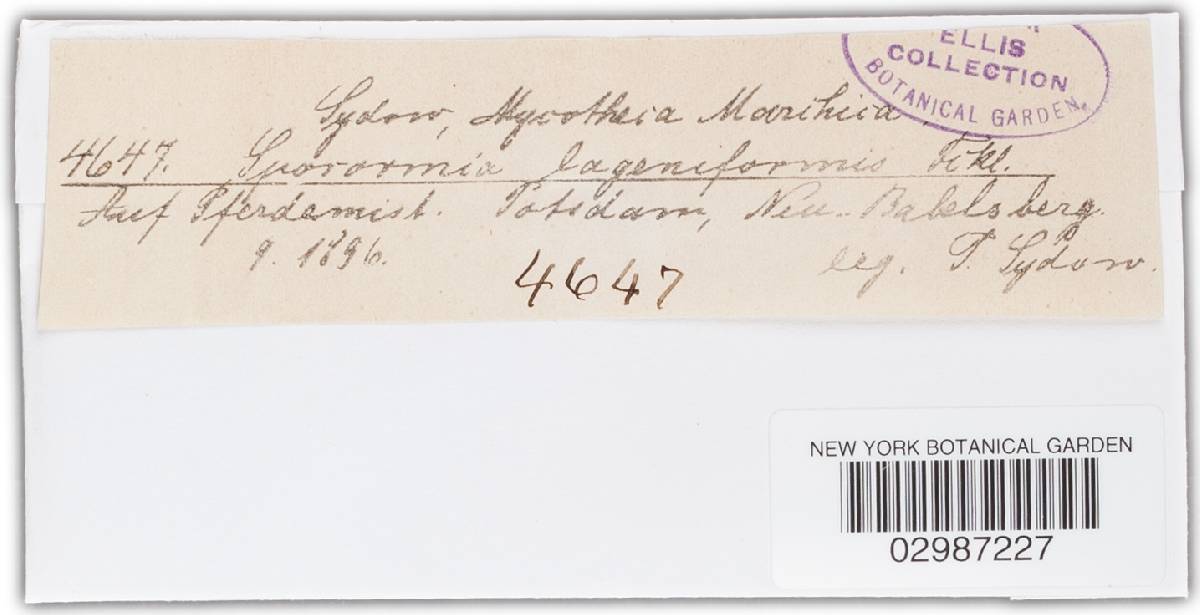 ELLIS
COLLECTION
BOTANICAL GARDEN.
Sydow, Mycotheca Marchica
4647. Sporormia lageniformis Fckl.
Auf Pferdemist. Potsdam, Neu-Babelsberg.
9. 1896. leg. P. Sydow.
4647
NEW YORK BOTANICAL GARDEN
02987227